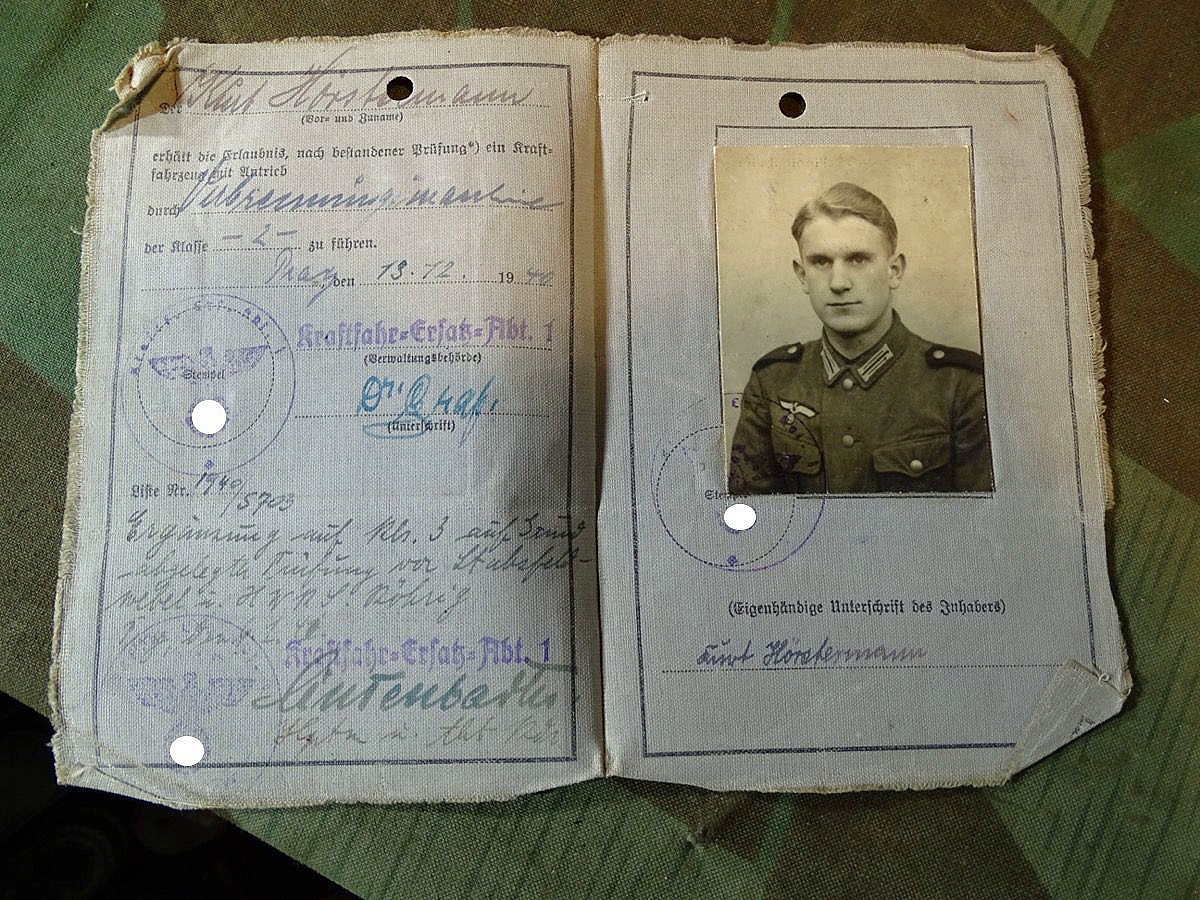 Der Kurt Hörstermann
(Vor= und Zuname)
erhält die Erlaubnis, nach bestandener Prüfung*) ein Kraft=
fahrzeug mit Antrieb
durch Verbrennungsmaschine
der Klasse - 2 - zu führen.
Prag, den 13.12. 1940
Stempel
Kraftfahr=Ersatz=Abt. 1
(Verwaltungsbehörde)
Dr. Graf.
(Unterschrift)
Liste Nr. 1940/5703
Ergänzung auf Kls. 3 auf Grund
abgelegter Prüfung vor Stabsfeld-
webel u.
Kraftfahr=Ersatz=Abt. 1
Hptm u.
Stempel
(Eigenhändige Unterschrift des Inhabers)
Kurt Hörstermann